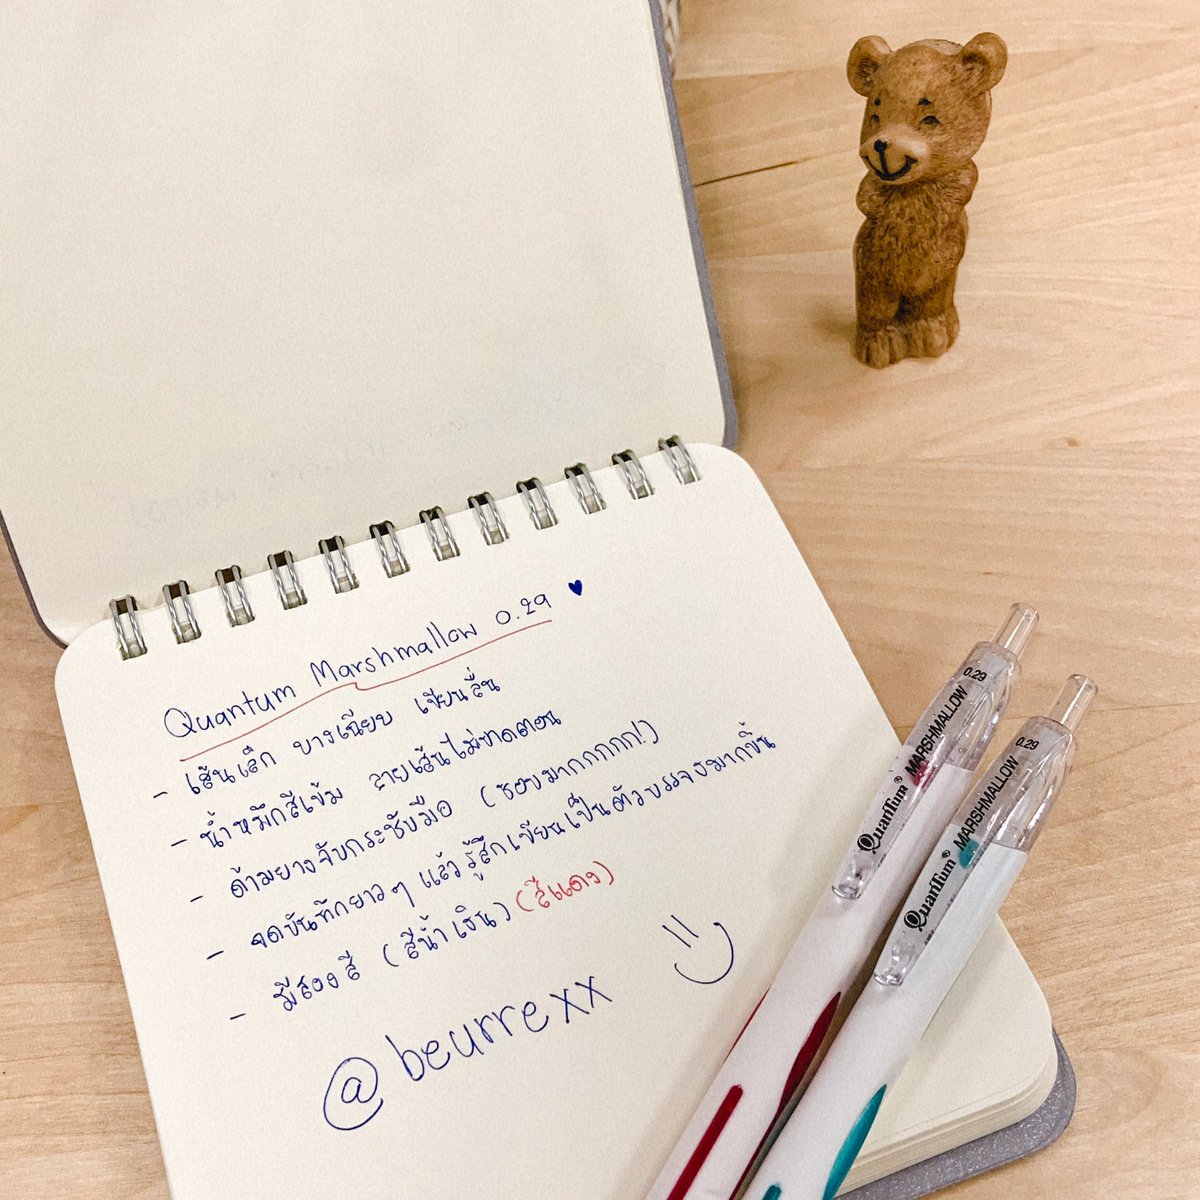 Quantum Marshmallow 0.29 ♥
- เส้นเล็ก บางเฉียบ เขียนลื่น
- น้ำหมึกสีเข้ม ลายเส้นไม่ขาดตอน
- ด้ามยางจับกระชับมือ (ชอบมากกกกก!)
- จดบันทึกยาวๆ แล้วรู้สึกเขียนเป็นตัวบรรจงมากขึ้น
- มีสองสี (สีน้ำเงิน) (สีแดง)
@beurrexx
QuanTum® MARSHMALLOW 0.29
QuanTum® MARSHMALLOW 0.29